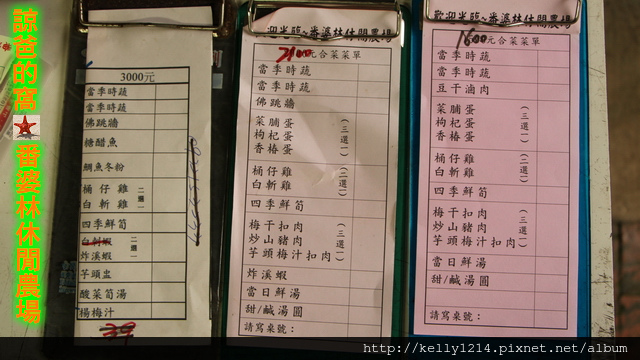 諒爸的窩
番婆林休閒農場
3000元
當季時蔬
當季時蔬
佛跳牆
糖醋魚
鯛魚冬粉
桶仔雞
白斬雞
二選一
四季鮮筍
白斬蝦
炸溪蝦
二選一
芋頭盅
酸菜筍湯
楊梅汁
歡迎光臨~番婆林休閒農場
2100元合菜菜單
當季時蔬
當季時蔬
佛跳牆
菜脯蛋
枸杞蛋
香椿蛋
(三選一)
桶仔雞
白斬雞
(二選一)
四季鮮筍
梅干扣肉
炒山豬肉
芋頭梅汁扣肉
(三選一)
炸溪蝦
當日鮮湯
甜/鹹湯圓
請寫桌號:
歡迎光臨~番婆林休閒農場
1600元合菜菜單
當季時蔬
當季時蔬
豆干滷肉
菜脯蛋
枸杞蛋
香椿蛋
(三選一)
桶仔雞
白斬雞
(二選一)
四季鮮筍
梅干扣肉
炒山豬肉
芋頭梅汁扣肉
(三選一)
當日鮮湯
甜/鹹湯圓
請寫桌號:
http://kelly1214.pixnet.net/album